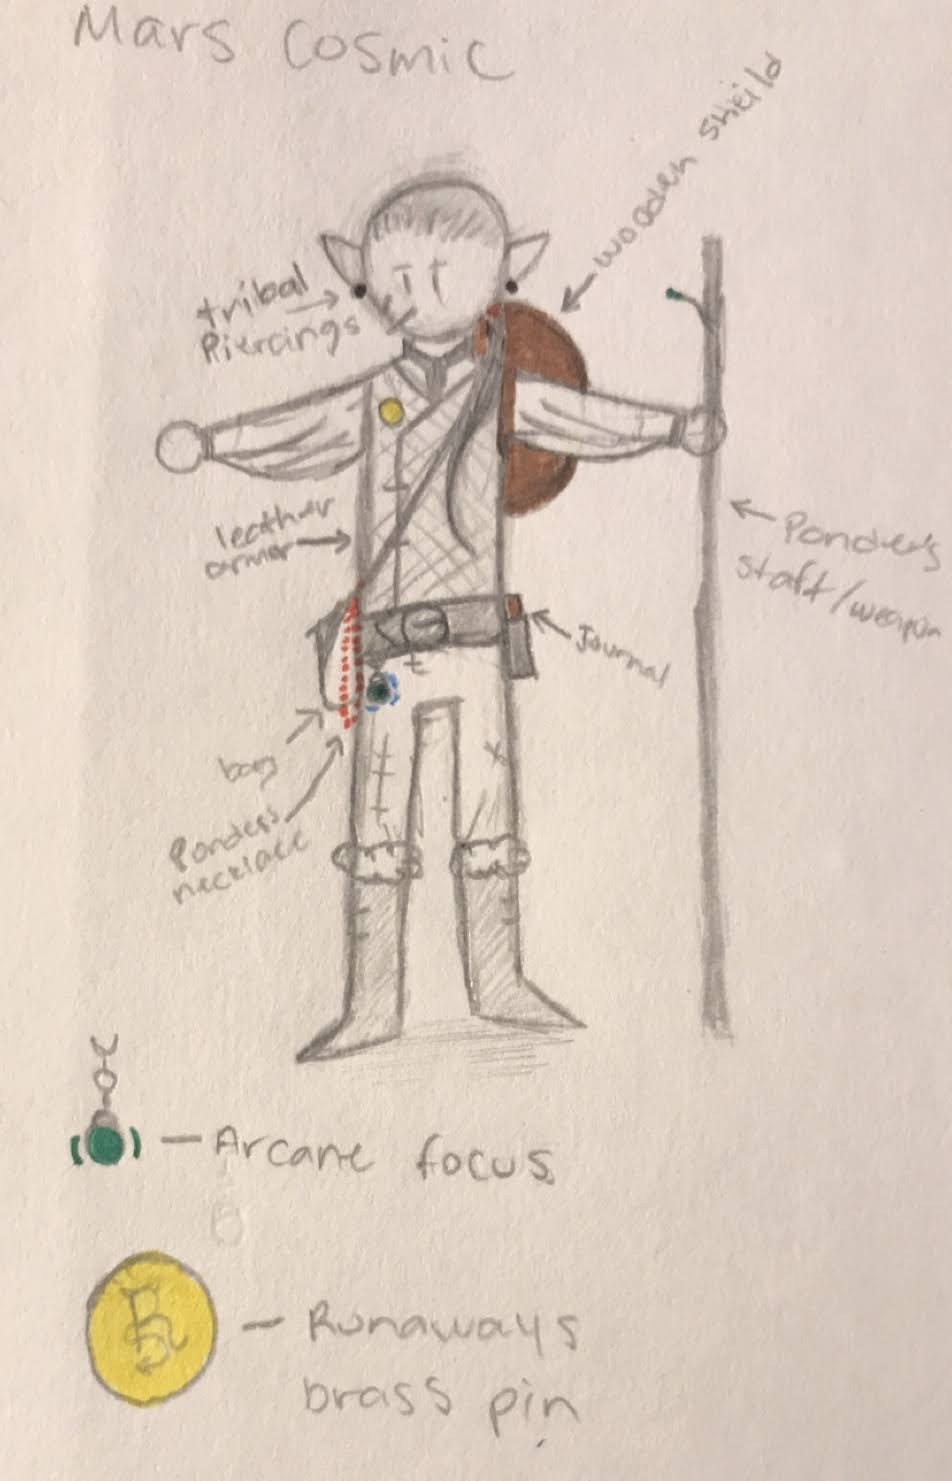 Mars Cosmic
wooden sheild
tribal
Piercings
leather
armor
Ponder's
staft/weapin
Journal
bag
Ponders
necklace
Arcane focus
R
Runaways
brass pin